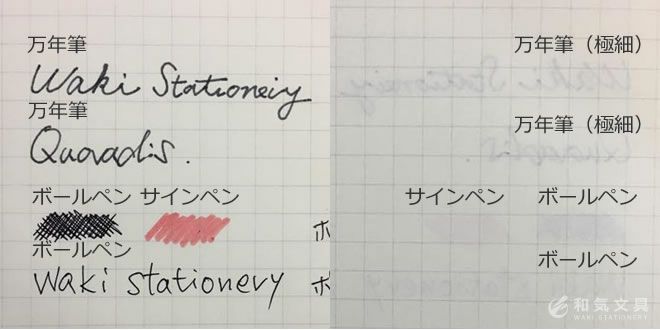 万年筆
Waki Stationery
万年筆
Quovadis.
ボールペン サインペン
ボ
ボールペン
Waki stationery
ボ
万年筆（極細）
万年筆（極細）
サインペン ボールペン
ボールペン
和気文具
WAKI STATIONERY